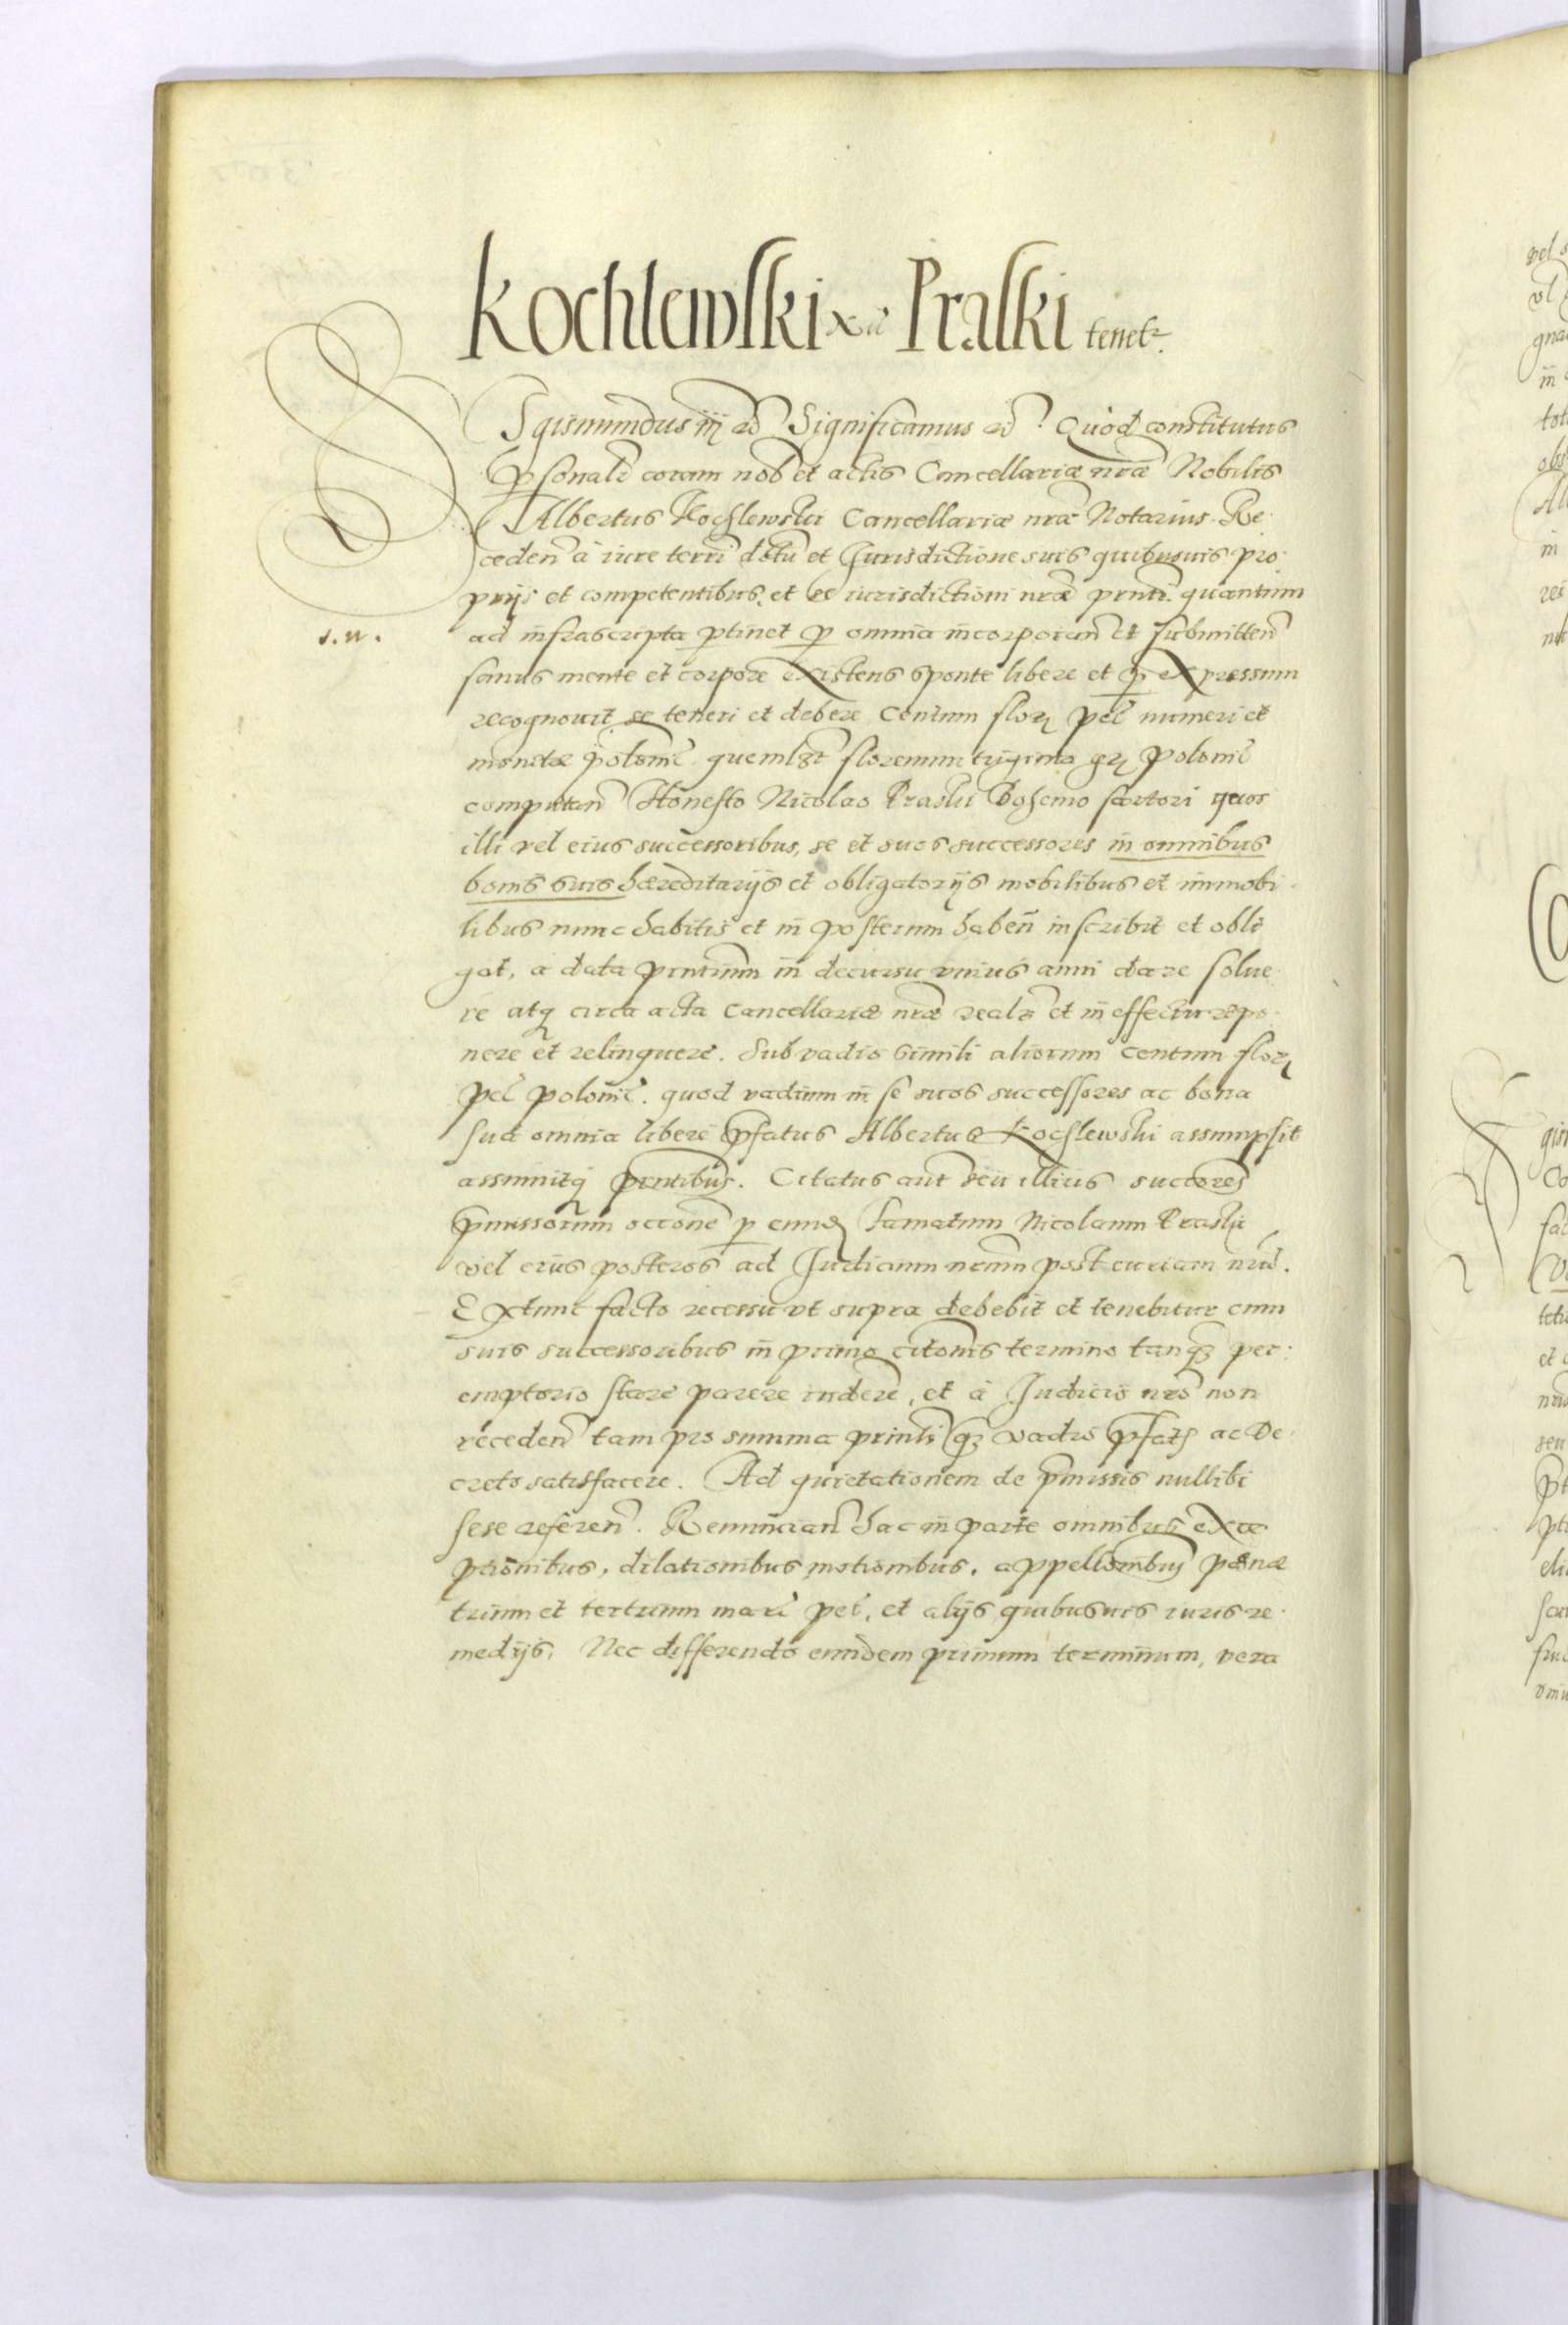 Kochlewski Praski tenetr.
Sigismundus iij Significamus Quod constitutus
psonalr coram nob et actis Cancellariæ nræ Nobilis
Albertus Kochlewski Cancellariæ nræ Notarius. Re
ceden à iure terri et Jurisdictione suis quibusuis pro
prijs et competentibus, et se iurisdictioni nræ prnti quantum
ad infrascripta ptinet p omnia incorporan et submitten
sanus mente et corpore existens sponte libere et p expressum
recognouit se teneri et debere Centum flor pec numeri et
monetæ polonic quemlibt florenum triginta gr polonic
computan Honesto Nicolao Praski sartori quos
illi vel eius successoribus, se et suos successores in omnibus
bonis suis hæreditarijs et obligatorijs mobilibus et immobi
libus nunc habitis et in posterum haben inscribit et obli
gat, a data pntium in decursu vnius anni dare solue
re atq circa acta Cancellariæ nræ realr et in effectu repo
nere et relinquere. Sub vadio simili aliorum Centum flor
pec polonic. quod vadium in se suos successores ac bona
sua omnia libere pfatus Albertus Kochlewski assumpsit
assumitq pntibus. Citatus aut seu illius succores
pmissorum occone p eund famatum Nicolaum Praski
vel eius posteros ad Judicium nrum post curiam nrã.
Extunc facto recessu vt supra debebit et tenebitur cum
suis successoribus in primo citonis termino tanq per
emptorio stare parere, et à Judicio nro non
receden tam pro summa prinli q vadio pfatis ac De
creto satisfacere. Ad quietationem de pmissis nullibi
sese referen. Renuncian hac in parte omnibus exce
ptionibus, dilationibus motionibus, appellonibus poenæ
trium et tertium marc pec, et alijs quibusuis iuris re
medijs, Nec differendo eundem primum terminum, vera